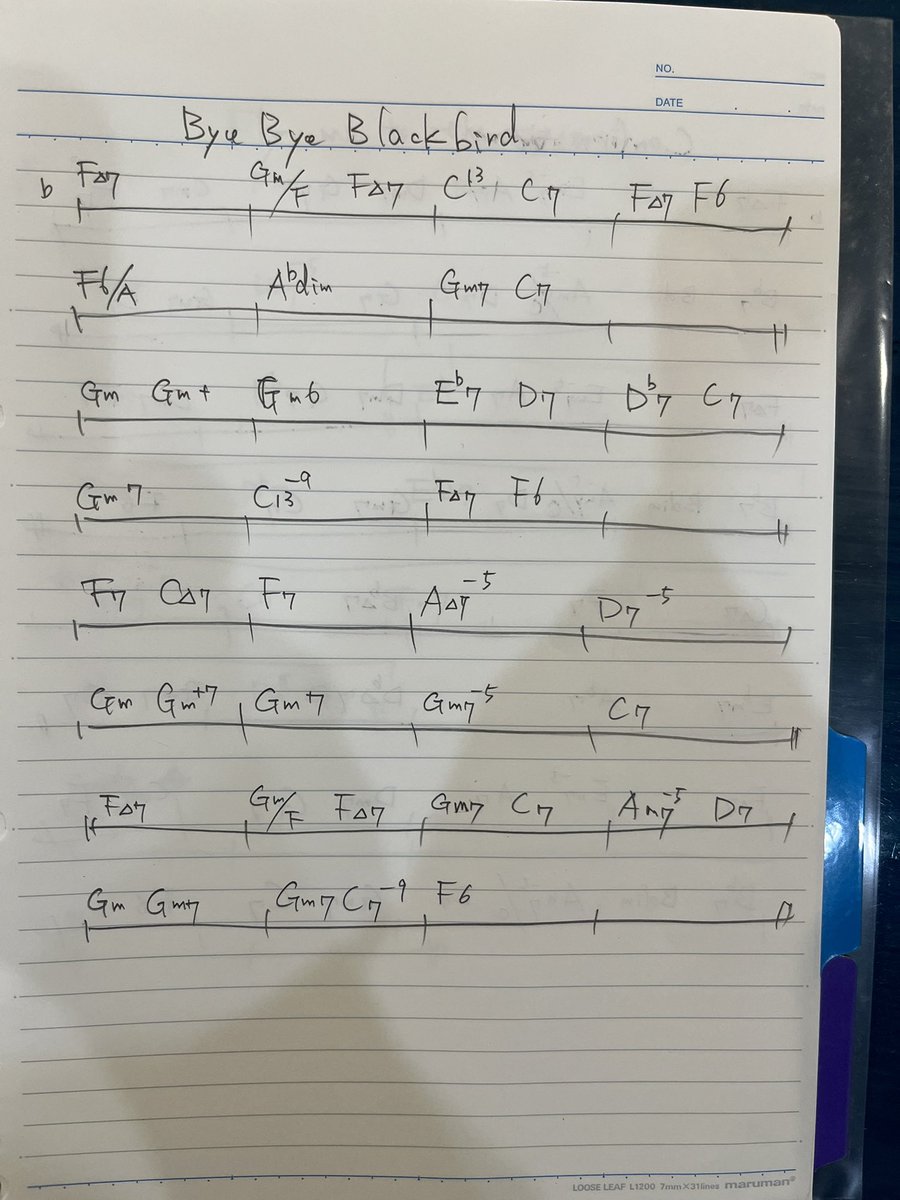 NO.
DATE
Bye Bye Blackbird
b F△7 Gm/F F△7 C13 C7 F△7 F6
F6/A A♭dim Gm7 C7
Gm Gm+ Gm6 E♭7 D7 D♭7 C7
Gm7 C13-9 F△7 F6
F7 C△7 F7 A△7-5 D7-5
Gm Gm+7 Gm7 Gm7-5 C7
F△7 Gm/F F△7 Gm7 C7 Am7-5 D7
Gm Gm+7 Gm7 C7-9 F6
LOOSE LEAF L1200 7mm×31lines maruman®